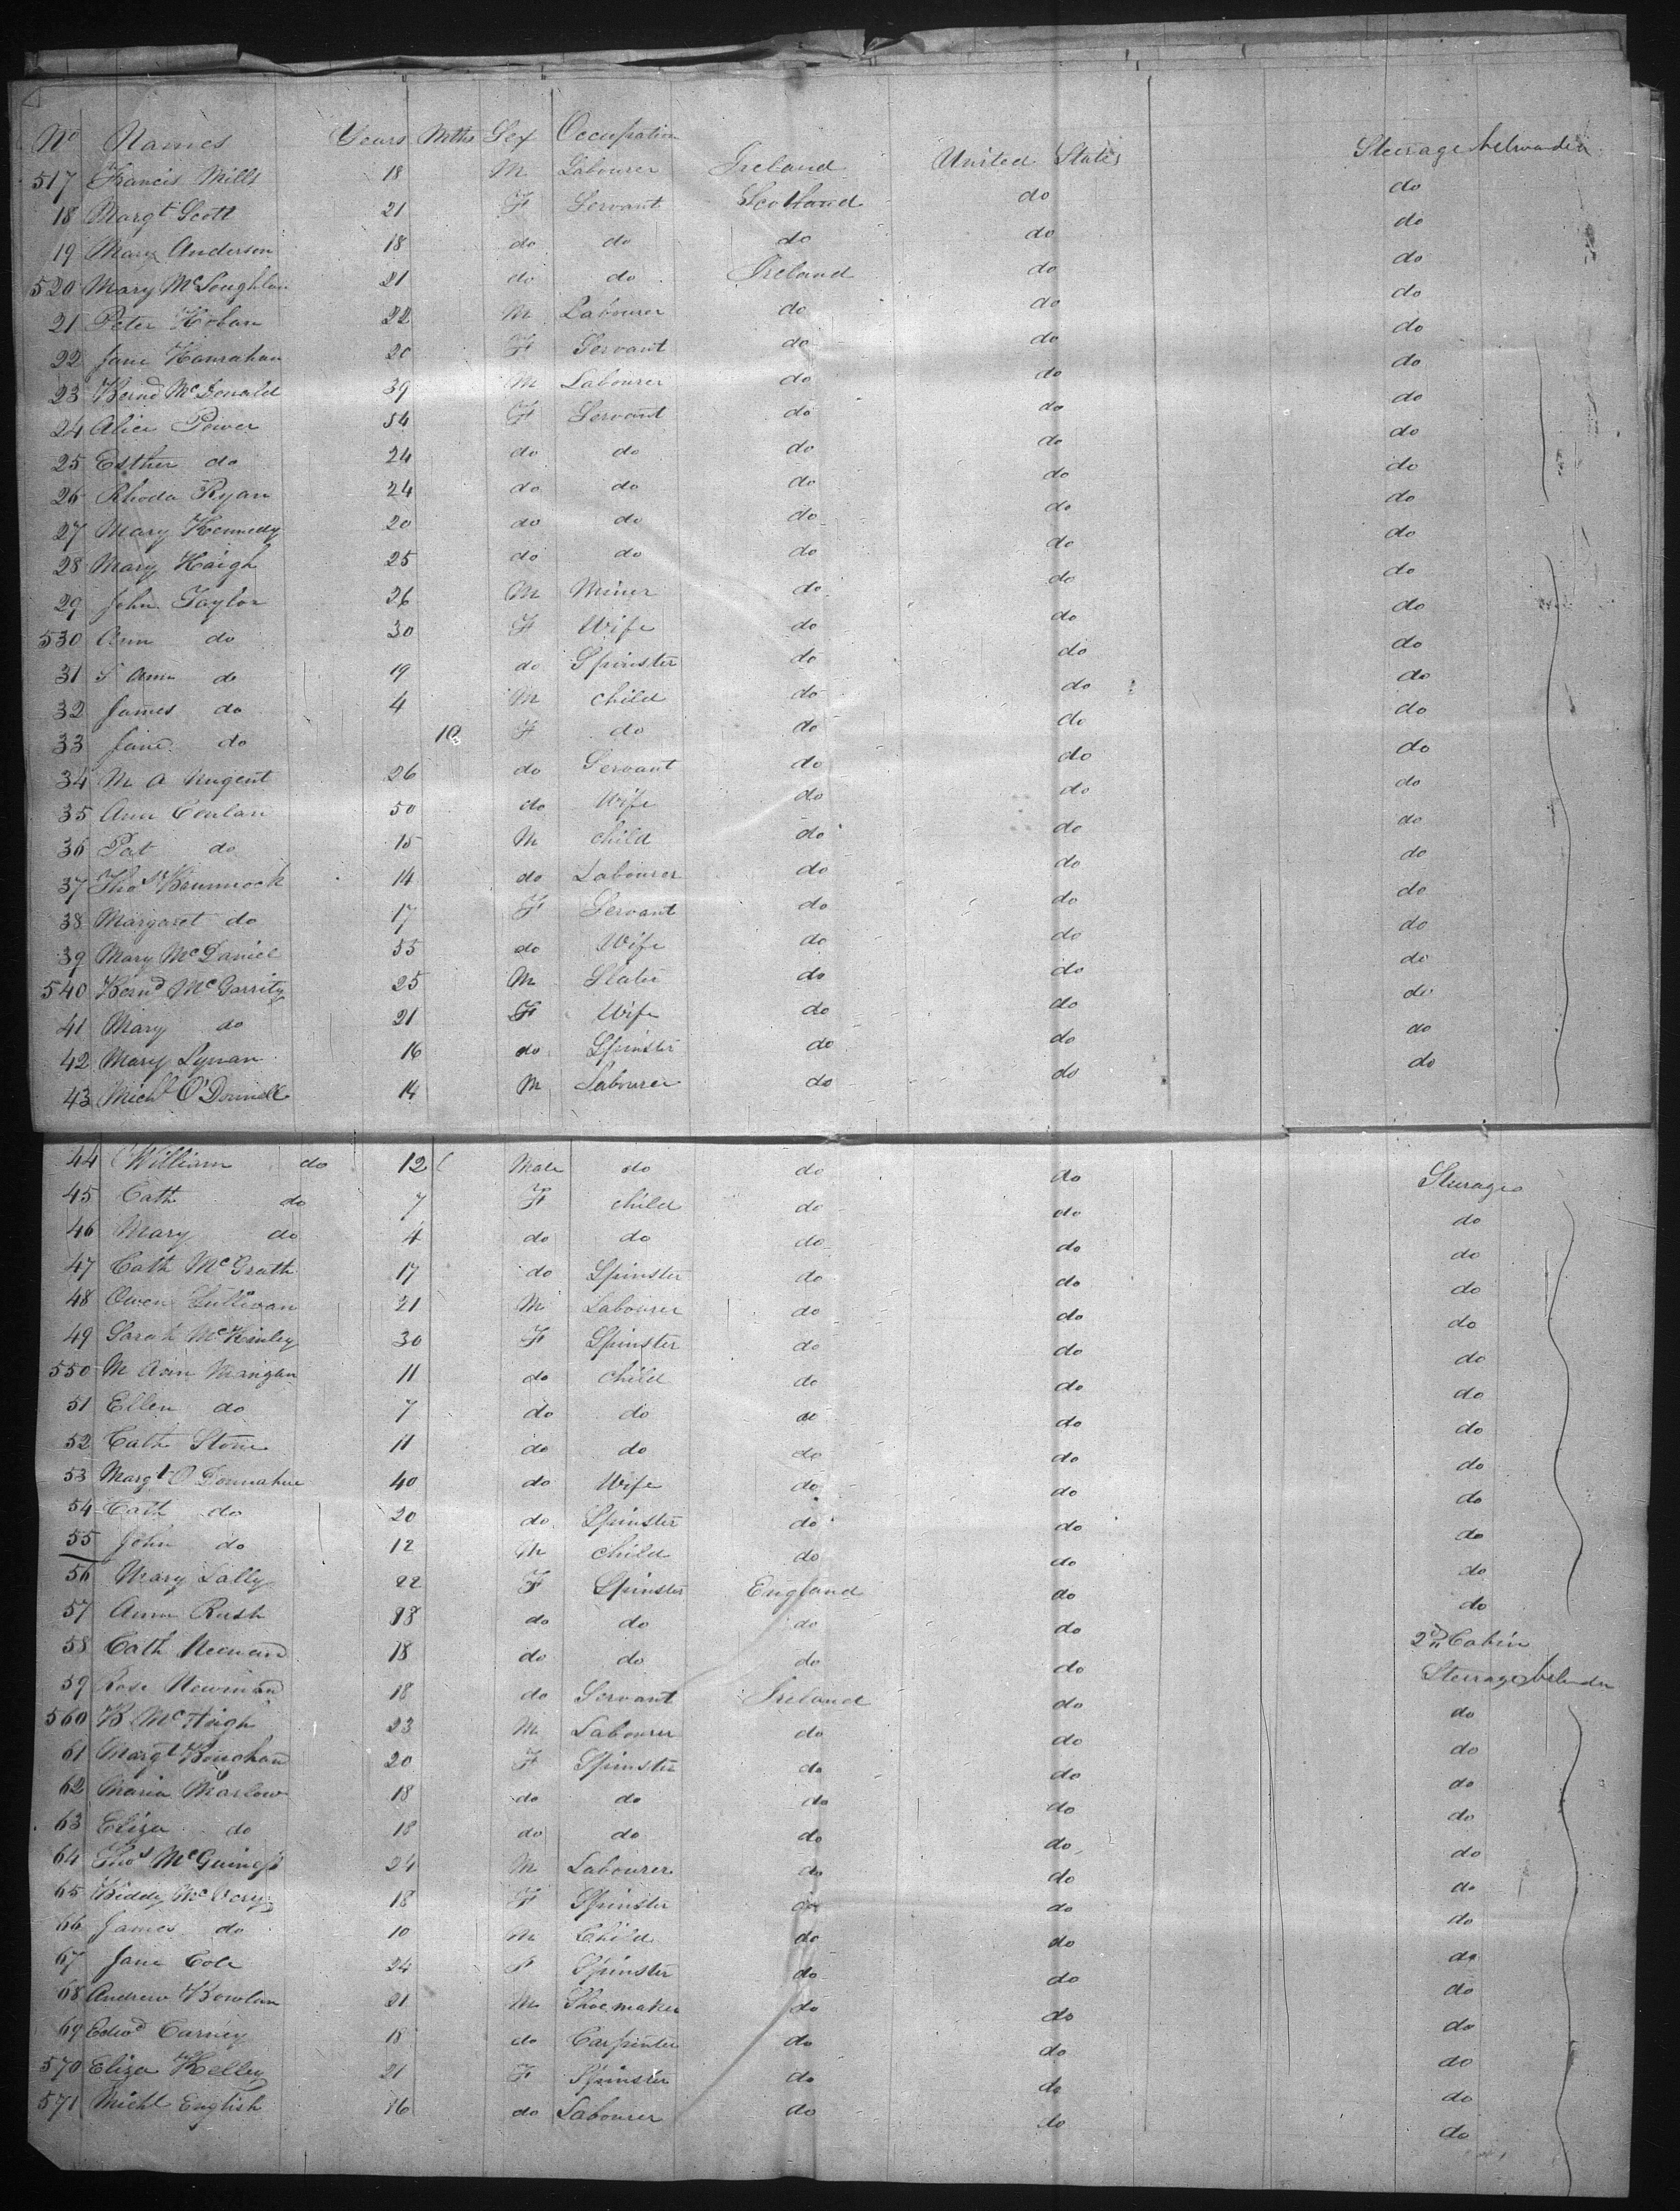 No Names Years Mths Sex Occupation
517 Francis Mills 18 M Labourer Ireland United States Steerage
18 Margt Scott 21 F Servant Scotland do do
19 Mary Anderson 18 do do do do do
520 Mary McLoughlin 21 do do Ireland do do
21 Peter Hoban 22 M Labourer do do do
22 Jane Hanrahan 20 F Servant do do do
23 Bernd McDonald 39 M Labourer do do do
24 Alice Power 54 F Servant do do do
25 Esther do 24 do do do do do
26 Rhoda Ryan 24 do do do do do
27 Mary Kennedy 20 do do do do do
28 Mary Haigh 25 do do do do do
29 John Taylor 26 M Miner do do do
530 Ann do 30 F Wife do do do
31 S Ann do 19 do Spinster do do do
32 James do 4 M child do do do
33 Jane do 10 F do do do do
34 M A Nugent 26 do Servant do do do
35 Ann Conlan 50 do Wife do do do
36 Pat do 15 M child do do do
37 Thos 14 do Labourer do do do
38 Margaret do 17 F Servant do do do
39 Mary McDaniel 55 do Wife do do do
540 Bernd McGarrity 25 M Slater do do do
41 Mary do 21 F Wife do do do
42 Mary Lynan 16 do Spinster do do do
43 Michl O'Donnell 14 M Labourer do do do
44 William do 12 Male do do do Steerage
45 Cath do 7 F child do do do
46 Mary do 4 do do do do do
47 Cath McGrath 17 do Spinster do do do
48 Owen Sullivan 21 M Labourer do do do
49 Sarah McKinley 30 F Spinster do do do
550 M Ann Mangan 11 do child do do do
51 Ellen do 7 do do do do do
52 Cath Stone 11 do do do do do
53 Margt O'Donnahue 40 do Wife do do do
54 Cath do 20 do Spinster do do do
55 John do 12 M child do do do
56 Mary Lally 22 F Spinster England do do
57 Ann Rush 18 do do do do 2nd Cabin
58 Cath 18 do do do do Steerage
59 Rose Newman 18 do Servant Ireland do do
560 B McHugh 23 M Labourer do do do
61 Margt 20 F Spinster do do do
62 Maria Marlow 18 do do do do do
63 Eliza do 18 do do do do do
64 Thos McGuiness 24 M Labourer do do do
65 Biddy McVery 18 F Spinster do do do
66 James do 10 M Child do do do
67 Jane Cole 24 F Spinster do do do
68 Andrew Bowlan 21 M Shoemaker do do do
69 Edwd Carney 18 do Carpenter do do do
570 Eliza Kelley 21 F Spinster do do do
571 Michl English 16 do Labourer do do do